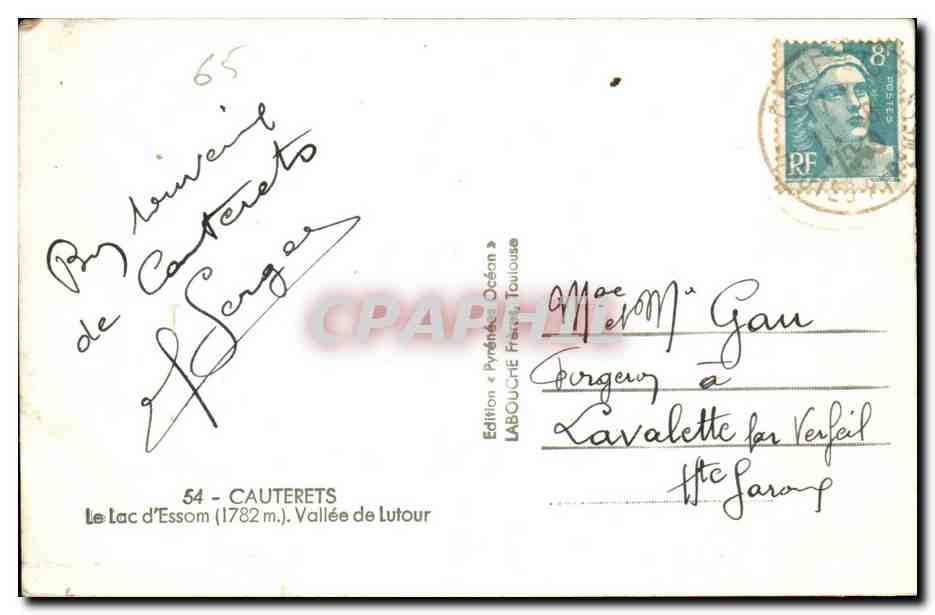 65
Bon souvenir
de Cauterets
54 - CAUTERETS
Le Lac d'Essom (1782 m.). Vallée de Lutour
Edition « Pyrénées Océan »
LABOUCHE Frères, Toulouse
CPAPHIL
8F
POSTES
RF
Mme et Mr Gau
Forgeron à
Lavalette par Verfeil
Hte Garonne